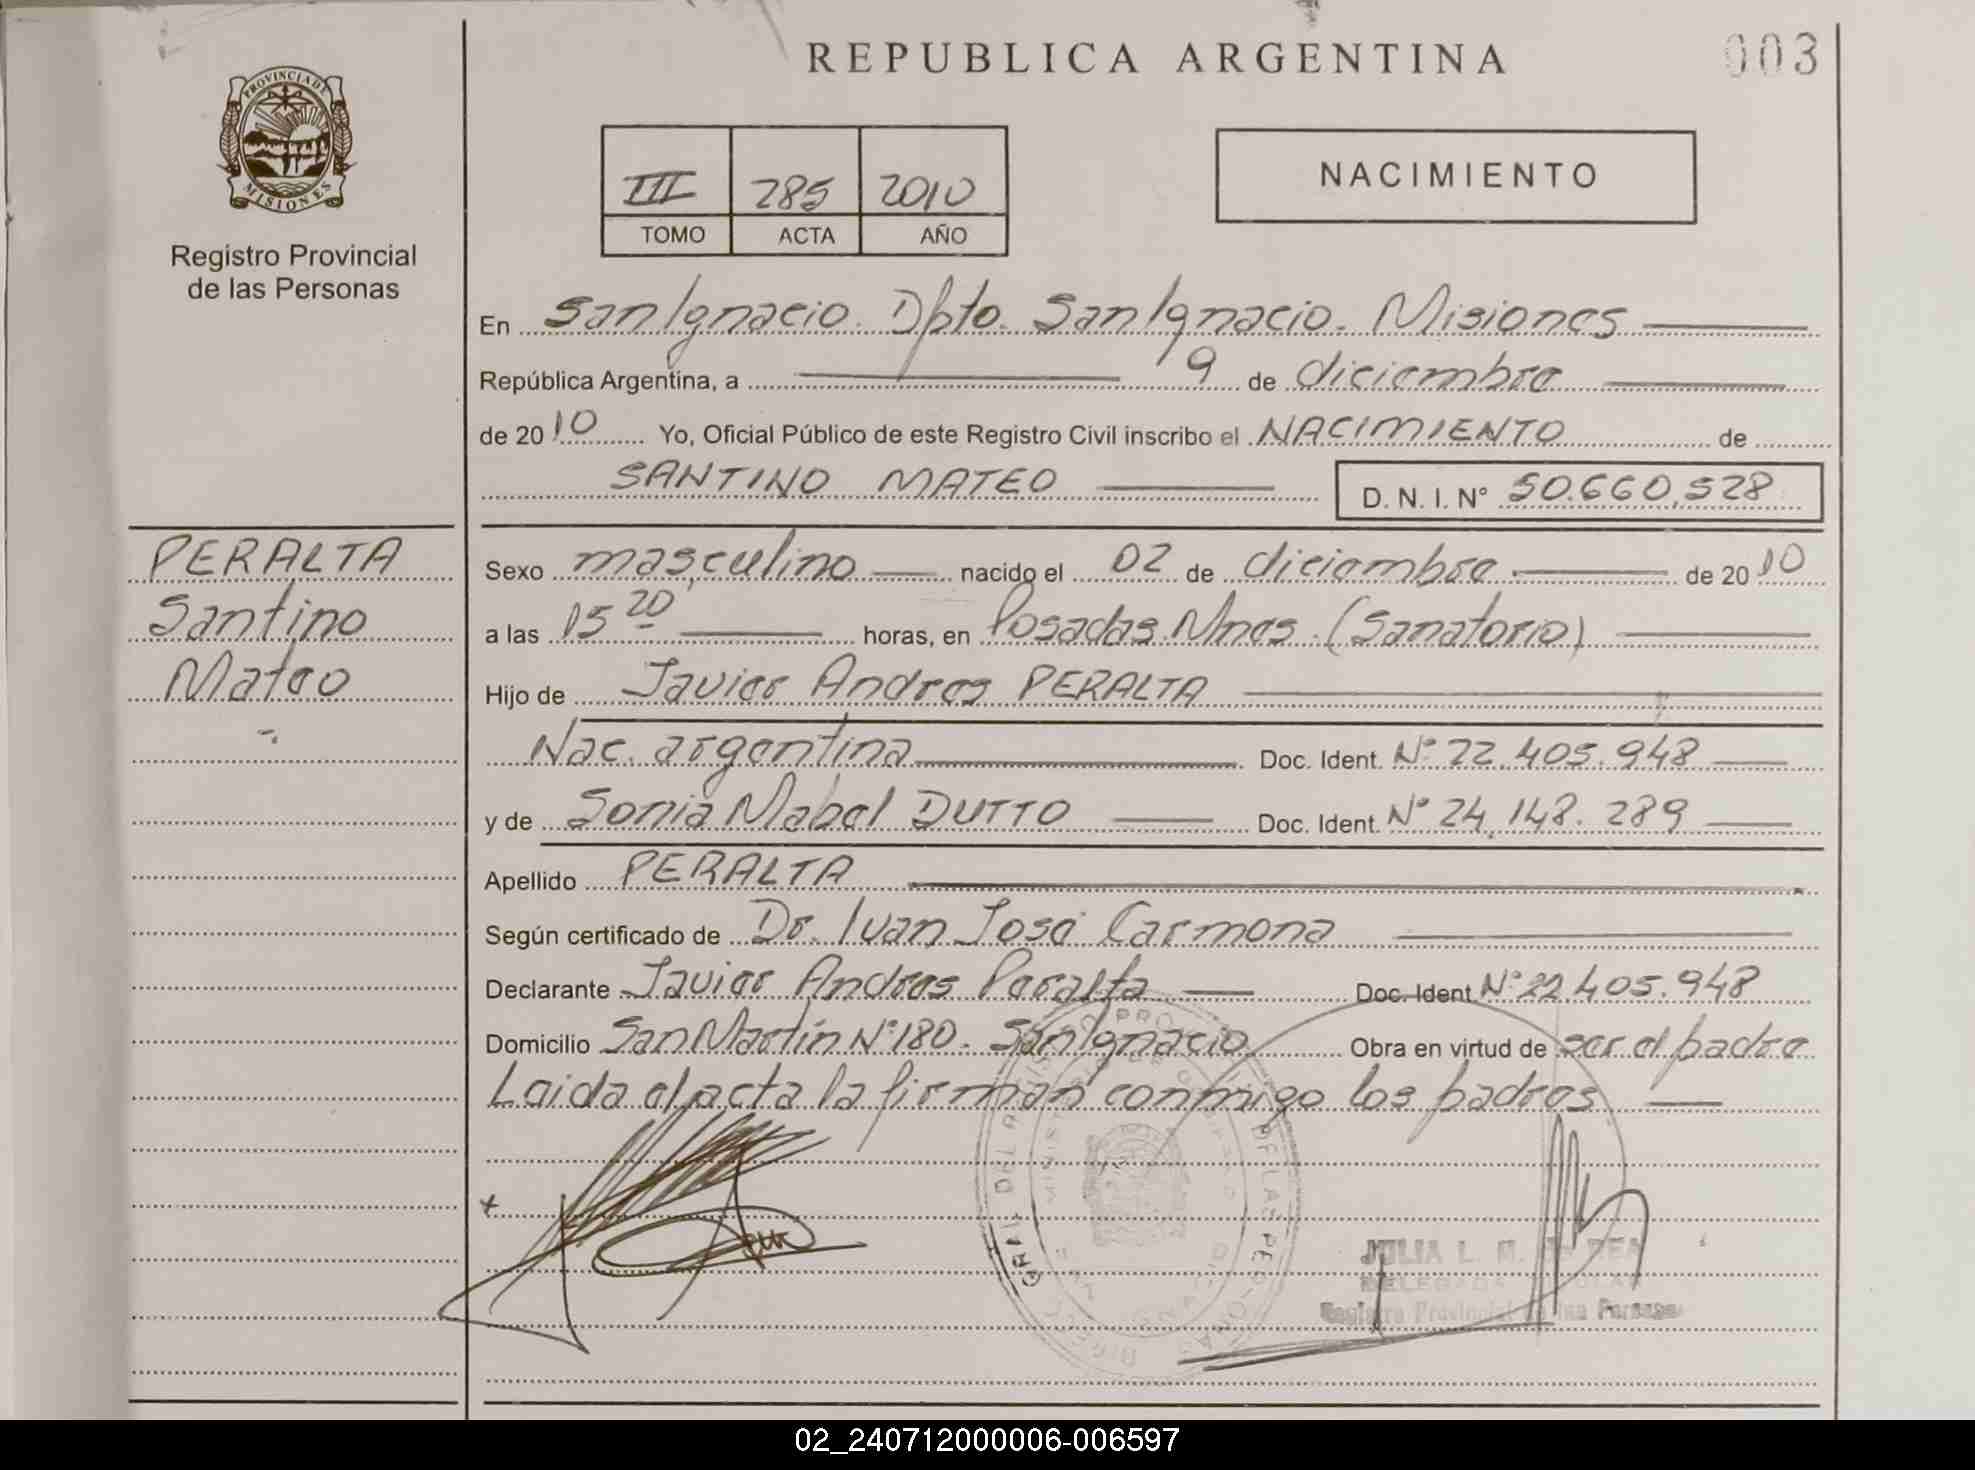 REPUBLICA ARGENTINA
003
PROVINCIA DE
MISIONES
Registro Provincial
de las Personas
III 285 2010
TOMO ACTA AÑO
NACIMIENTO
En San Ignacio. Dpto. San Ignacio. Misiones
República Argentina, a 9 de diciembre
de 2010 Yo, Oficial Público de este Registro Civil inscribo el NACIMIENTO de
SANTINO MATEO D.N.I. N° 50.660.528
PERALTA
Santino
Mateo
Sexo masculino nacido el 02 de diciembre de 2010
a las 15 20 horas, en Posadas Mnes. (Sanatorio)
Hijo de Javier Andres PERALTA
Nac. argentina Doc. Ident. N° 22.405.948
y de Sonia Mabel DUTTO Doc. Ident. N° 24.148.289
Apellido PERALTA
Según certificado de Dr. Ivan José Carmona
Declarante Javier Andres Peralta Doc. Ident N° 22.405.948
Domicilio San Martín N° 180. San Ignacio Obra en virtud de ser el padre
Leida el acta la firman conmigo los padres
JULIA L.
Registro Provincial de las Personas
02_240712000006-006597